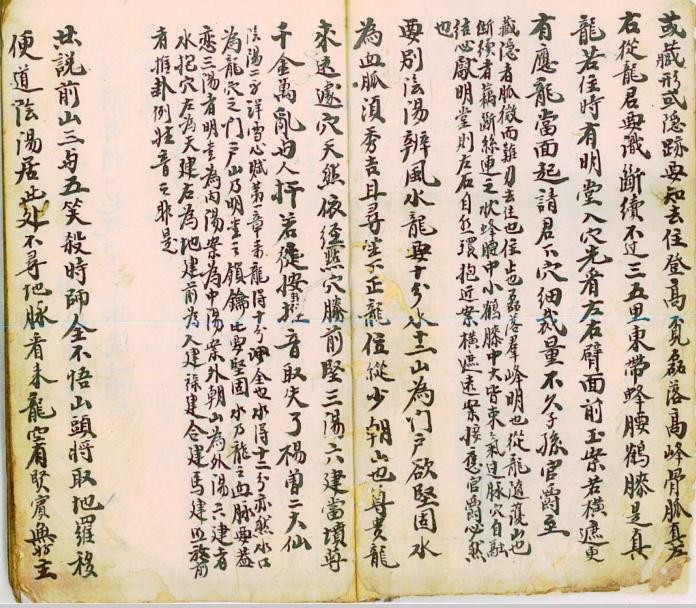 或藏形或隱跡要知去住登高不見磊落高峰骨脈真左
右從龍君要識斷續不过三五里東帶蜂腰鶴膝是真
龍若住時有明堂入穴先看左右臂面前玉案若橫遮更
有應龍當面起請君下穴細裁量不久子孫官爵至
藏隱者脈微而難別去住也住止也磊落羣峰明也從龍隨護山也
斷續者藕斷絲連之状蜂腰中小鶴膝中大皆束氣过脉穴自融
結也獻明堂則左右自然環抱近案橫遮遠案接應官爵必然
也
要別陰陽辨風水龍要十分水十二山為門戸欲堅固水
為血脈須秀吉且尋坐下正龍位從少朝山也尊貴龍
來遠遠穴天然依經點穴勝前堅三陽六建當墳尊
千金萬亂与人扞若從按 拯音取失了楊曾二大仙
陰陽二字詳雪心賦第一章來龍得十分神全也水得十二分亦然水口
為龍穴之門戸山乃明堂之鎖鑰比要堅固水乃龍之血脈要益
恋三陽者明堂為内陽案為中陽案外朝山為外陽六建者
水抱穴左為天建右為地建前為人建禄建合建馬建四巌前
者推卦例拄音之非是
此説前山三与五笑殺時師全不悟山頭將取地羅移
便道陰陽居此处不尋地脉看來龍 有堅賓與主